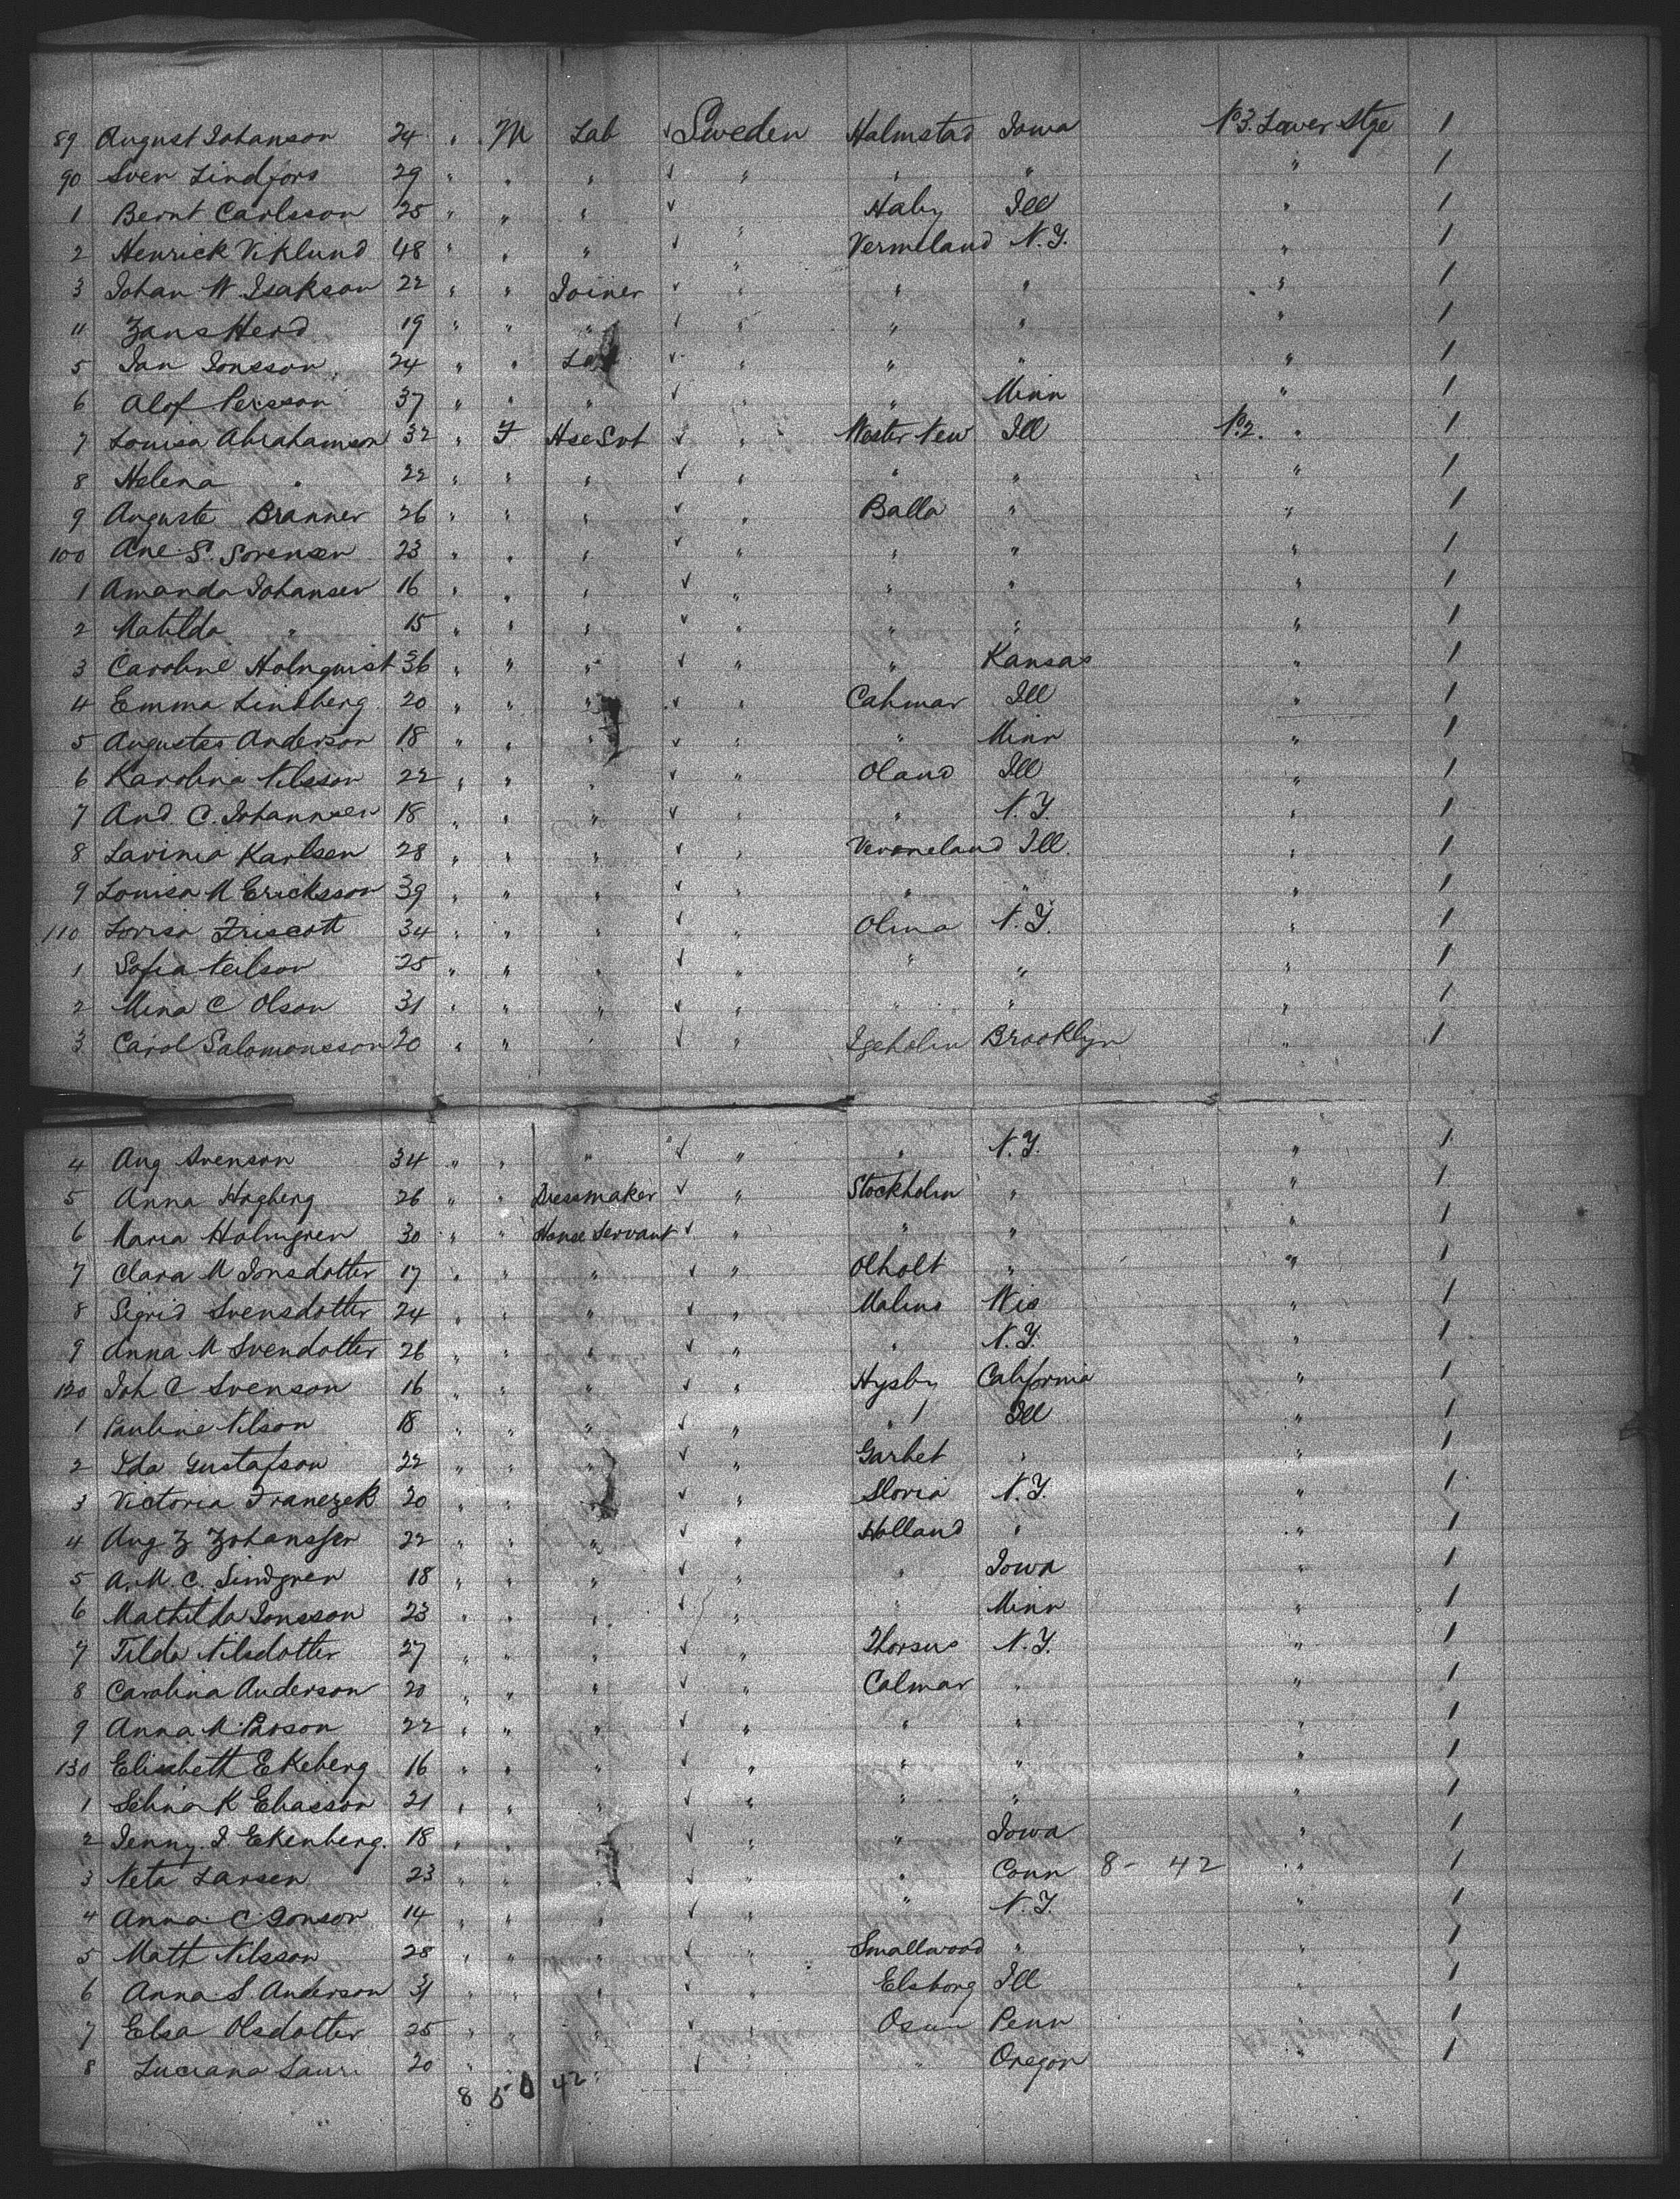 89 August Johanson 24 " M Lab ✓ Sweden Halmstad Iowa No 3. Lower Stge 1
90 Sven Lindfors 29 " " " ✓ " " " " 1
1 Bernt Carlsson 25 " " " ✓ " Haby Ill " 1
2 Henrick Viklund 48 " " " ✓ " Vermeland N.Y. " 1
3 Johan W Isakson 22 " " Joiner ✓ " " " " 1
" Zans Herd 19 " " " ✓ " " " " 1
5 Jan Jonsson 24 " " Lab ✓ " " " " 1
6 Alof Persson 37 " " " ✓ " " Minn " 1
7 Louisa Abrahamson 32 " F Hse Svt ✓ " Wester New Ill No 2. " 1
8 Helena " 22 " " " ✓ " " " " 1
9 Auguste Branner 26 " " " ✓ " Balla " " 1
100 Ane S. Sorensen 23 " " " ✓ " " " " 1
1 Amanda Johansen 16 " " " ✓ " " " " 1
2 Matilda " 15 " " " ✓ " " " " 1
3 Caroline Holmquist 36 " " " ✓ " " Kansas " 1
4 Emma Lindberg 20 " " " ✓ " Cahmar Ill " 1
5 Augustas Anderson 18 " " " ✓ " " Minn " 1
6 Karolina Nilsson 22 " " " ✓ " Oland Ill " 1
7 And. C. Johannsen 18 " " " ✓ " " N.Y. " 1
8 Lavinia Karlsen 28 " " " ✓ " Vermeland Ill. " 1
9 Louisa M Ericksson 39 " " " ✓ " " " " 1
110 Lovisa Friscott 34 " " " ✓ " Olma N.Y. " 1
1 Sofia Neilson 25 " " " ✓ " " " " 1
2 Mina C Olson 31 " " " ✓ " " " " 1
3 Carol Salomonsson 20 " " " ✓ " Igeholm Brooklyn " 1
4 Aug Svenson 34 " " " ✓ " " N.Y. " 1
5 Anna Hogberg 26 " " Dressmaker ✓ " Stockholm " " 1
6 Maria Holmgren 30 " " House Servant ✓ " " " " 1
7 Clara M Jonsdotter 17 " " " ✓ " Olholt " " 1
8 Sigrid Svensdotter 24 " " " ✓ " Malmo Wis " 1
9 Anna M Svendotter 26 " " " ✓ " " N.Y. " 1
120 Joh C Svenson 16 " " " ✓ " Hysby California " 1
1 Pauline Nilson 18 " " " ✓ " " Ill " 1
2 Ida Gustafson 22 " " " ✓ " Garhet " " 1
3 Victoria Franezek 20 " " " ✓ " Sloria N.Y. " 1
4 Aug Z Zohansson 22 " " " ✓ " Holland " " 1
5 A. M. C. Lindgren 18 " " " ✓ " " Iowa " 1
6 Mathilda Jonsson 23 " " " ✓ " " Minn " 1
7 Tilda Nilsdotter 27 " " " ✓ " Thorsus N.Y. " 1
8 Carolina Anderson 20 " " " ✓ " Calmar " " 1
9 Anna M Parson 22 " " " ✓ " " " " 1
130 Elisabett Ekeberg 16 " " " ✓ " " " " 1
1 Selina K Eliasson 21 " " " ✓ " " " " 1
2 Jenny I Ekenberg. 18 " " " ✓ " " Iowa " 1
3 Neta Larsen 23 " " " ✓ " " Conn 8 - 42 " 1
4 Anna C Jonson 14 " " " ✓ " " N.Y. " 1
5 Math Nilsson 28 " " " ✓ " Smallwood " " 1
6 Anna S Anderson 31 " " " ✓ " Elsborg Ill " 1
7 Elsa Olsdotter 25 " " " ✓ " Osun Penn " 1
8 Luciana Lauri 20 " ✓ " Oregon " 1
8 5 42